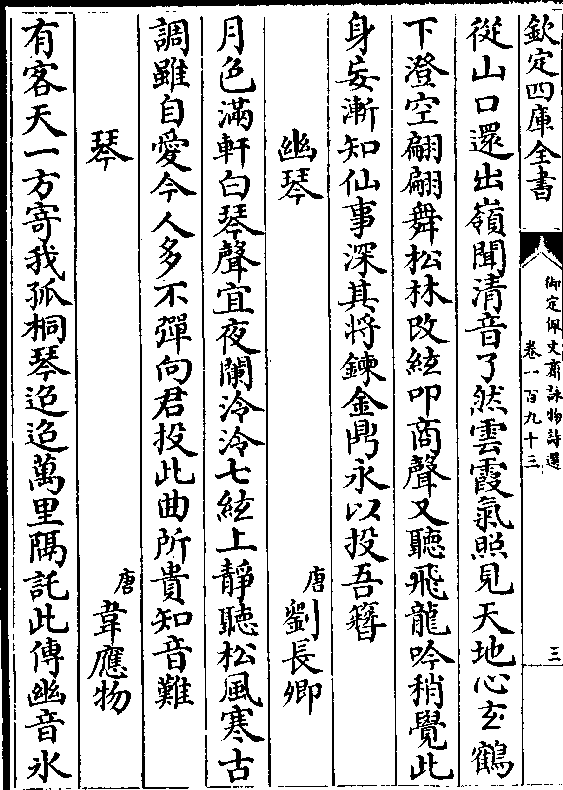 欽定四庫全書
御定佩文齋詠物詩選
卷一百九十三
三
從山口還出嶺聞清音了然雲霞氣照見天地心玄鶴
下澄空翩翩舞松林改絃叩商聲又聽飛龍吟稍覺此
身妄漸知仙事深其將鍊金鼎永以投吾簪
幽琴
唐 劉長卿
月色滿軒白琴聲宜夜闌泠泠七絃上靜聽松風寒古
調雖自愛今人多不彈向君投此曲所貴知音難
琴
唐 韋應物
有客天一方寄我孤桐琴迢迢萬里隔託此傳幽音氷